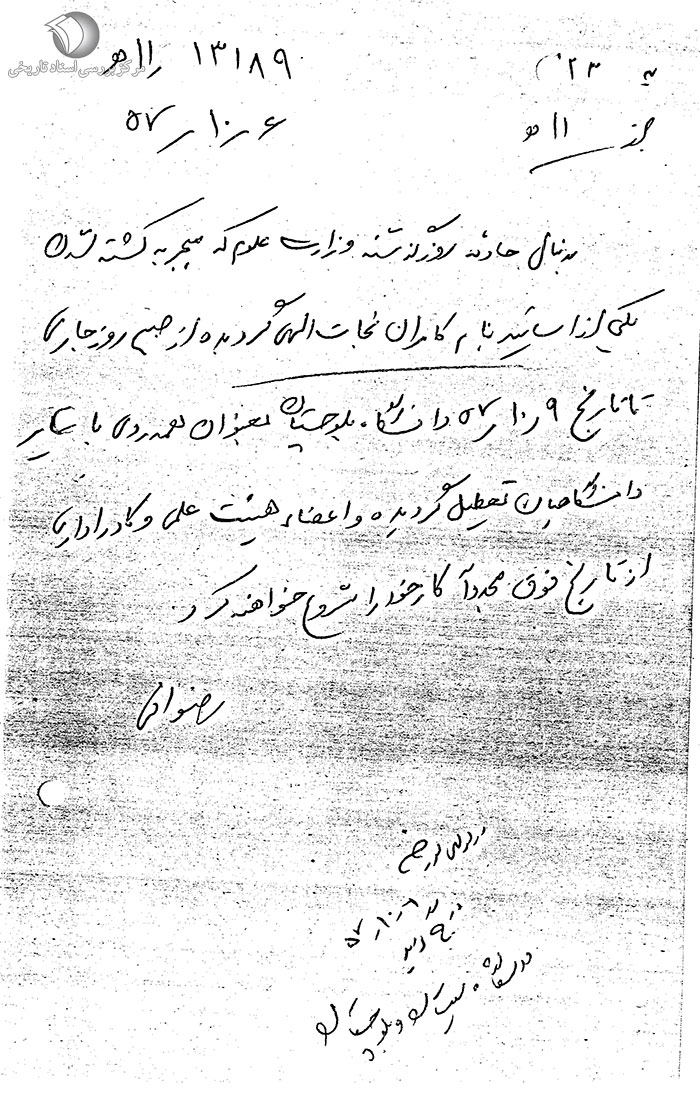 مرکز بررسی اسناد تاریخی
به ۲۳
۱۳۱۸۹ / ۱۱ ه
از ۱۱ ه
۵۷/۱۰/۶
بدنبال حادثه روز گذشته وزارت علوم که منجر به کشته شدن
یکی از اساتید بنام کامران نجات الهی گردیده از صبح روز جاری
تا تاریخ ۵۷/۱۰/۹ دانشگاه بلوچستان بعنوان همدردی با سایر
دانشگاهیان تعطیل گردیده و اعضاء هیئت علمی و کادر اداری
از تاریخ فوق مجدداً کار خود را شروع خواهند کرد.
رضوانی
در
۵۷/۱۰/
درج
دانشگاه سیستان و بلوچستان